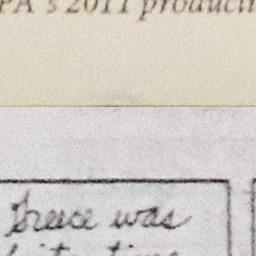 PA's 2011 producti
Greece was
time